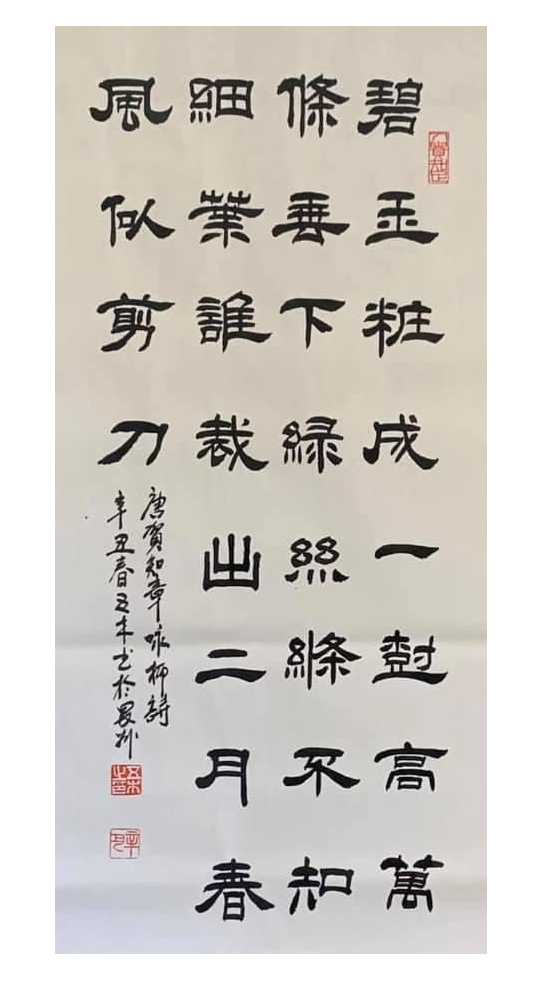 碧玉粧成一樹高萬
條垂下綠絲絛不知
細葉誰裁出二月春
風似剪刀
唐賀知章咏柳詩
辛丑春 書於